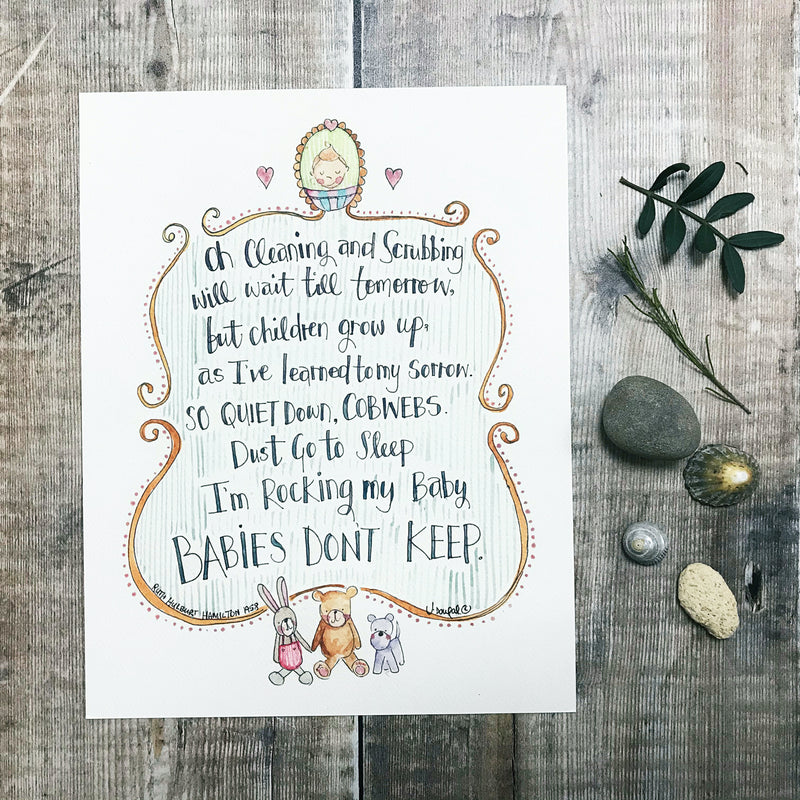 Oh Cleaning and Scrubbing
will wait till tomorrow,
but children grow up,
as I've learned to my sorrow.
SO QUIET Down, COBWEBS.
Dust Go to Sleep
I'm Rocking my Baby
BABIES DON'T KEEP.
RUTH HULBURT HAMILTON 1958